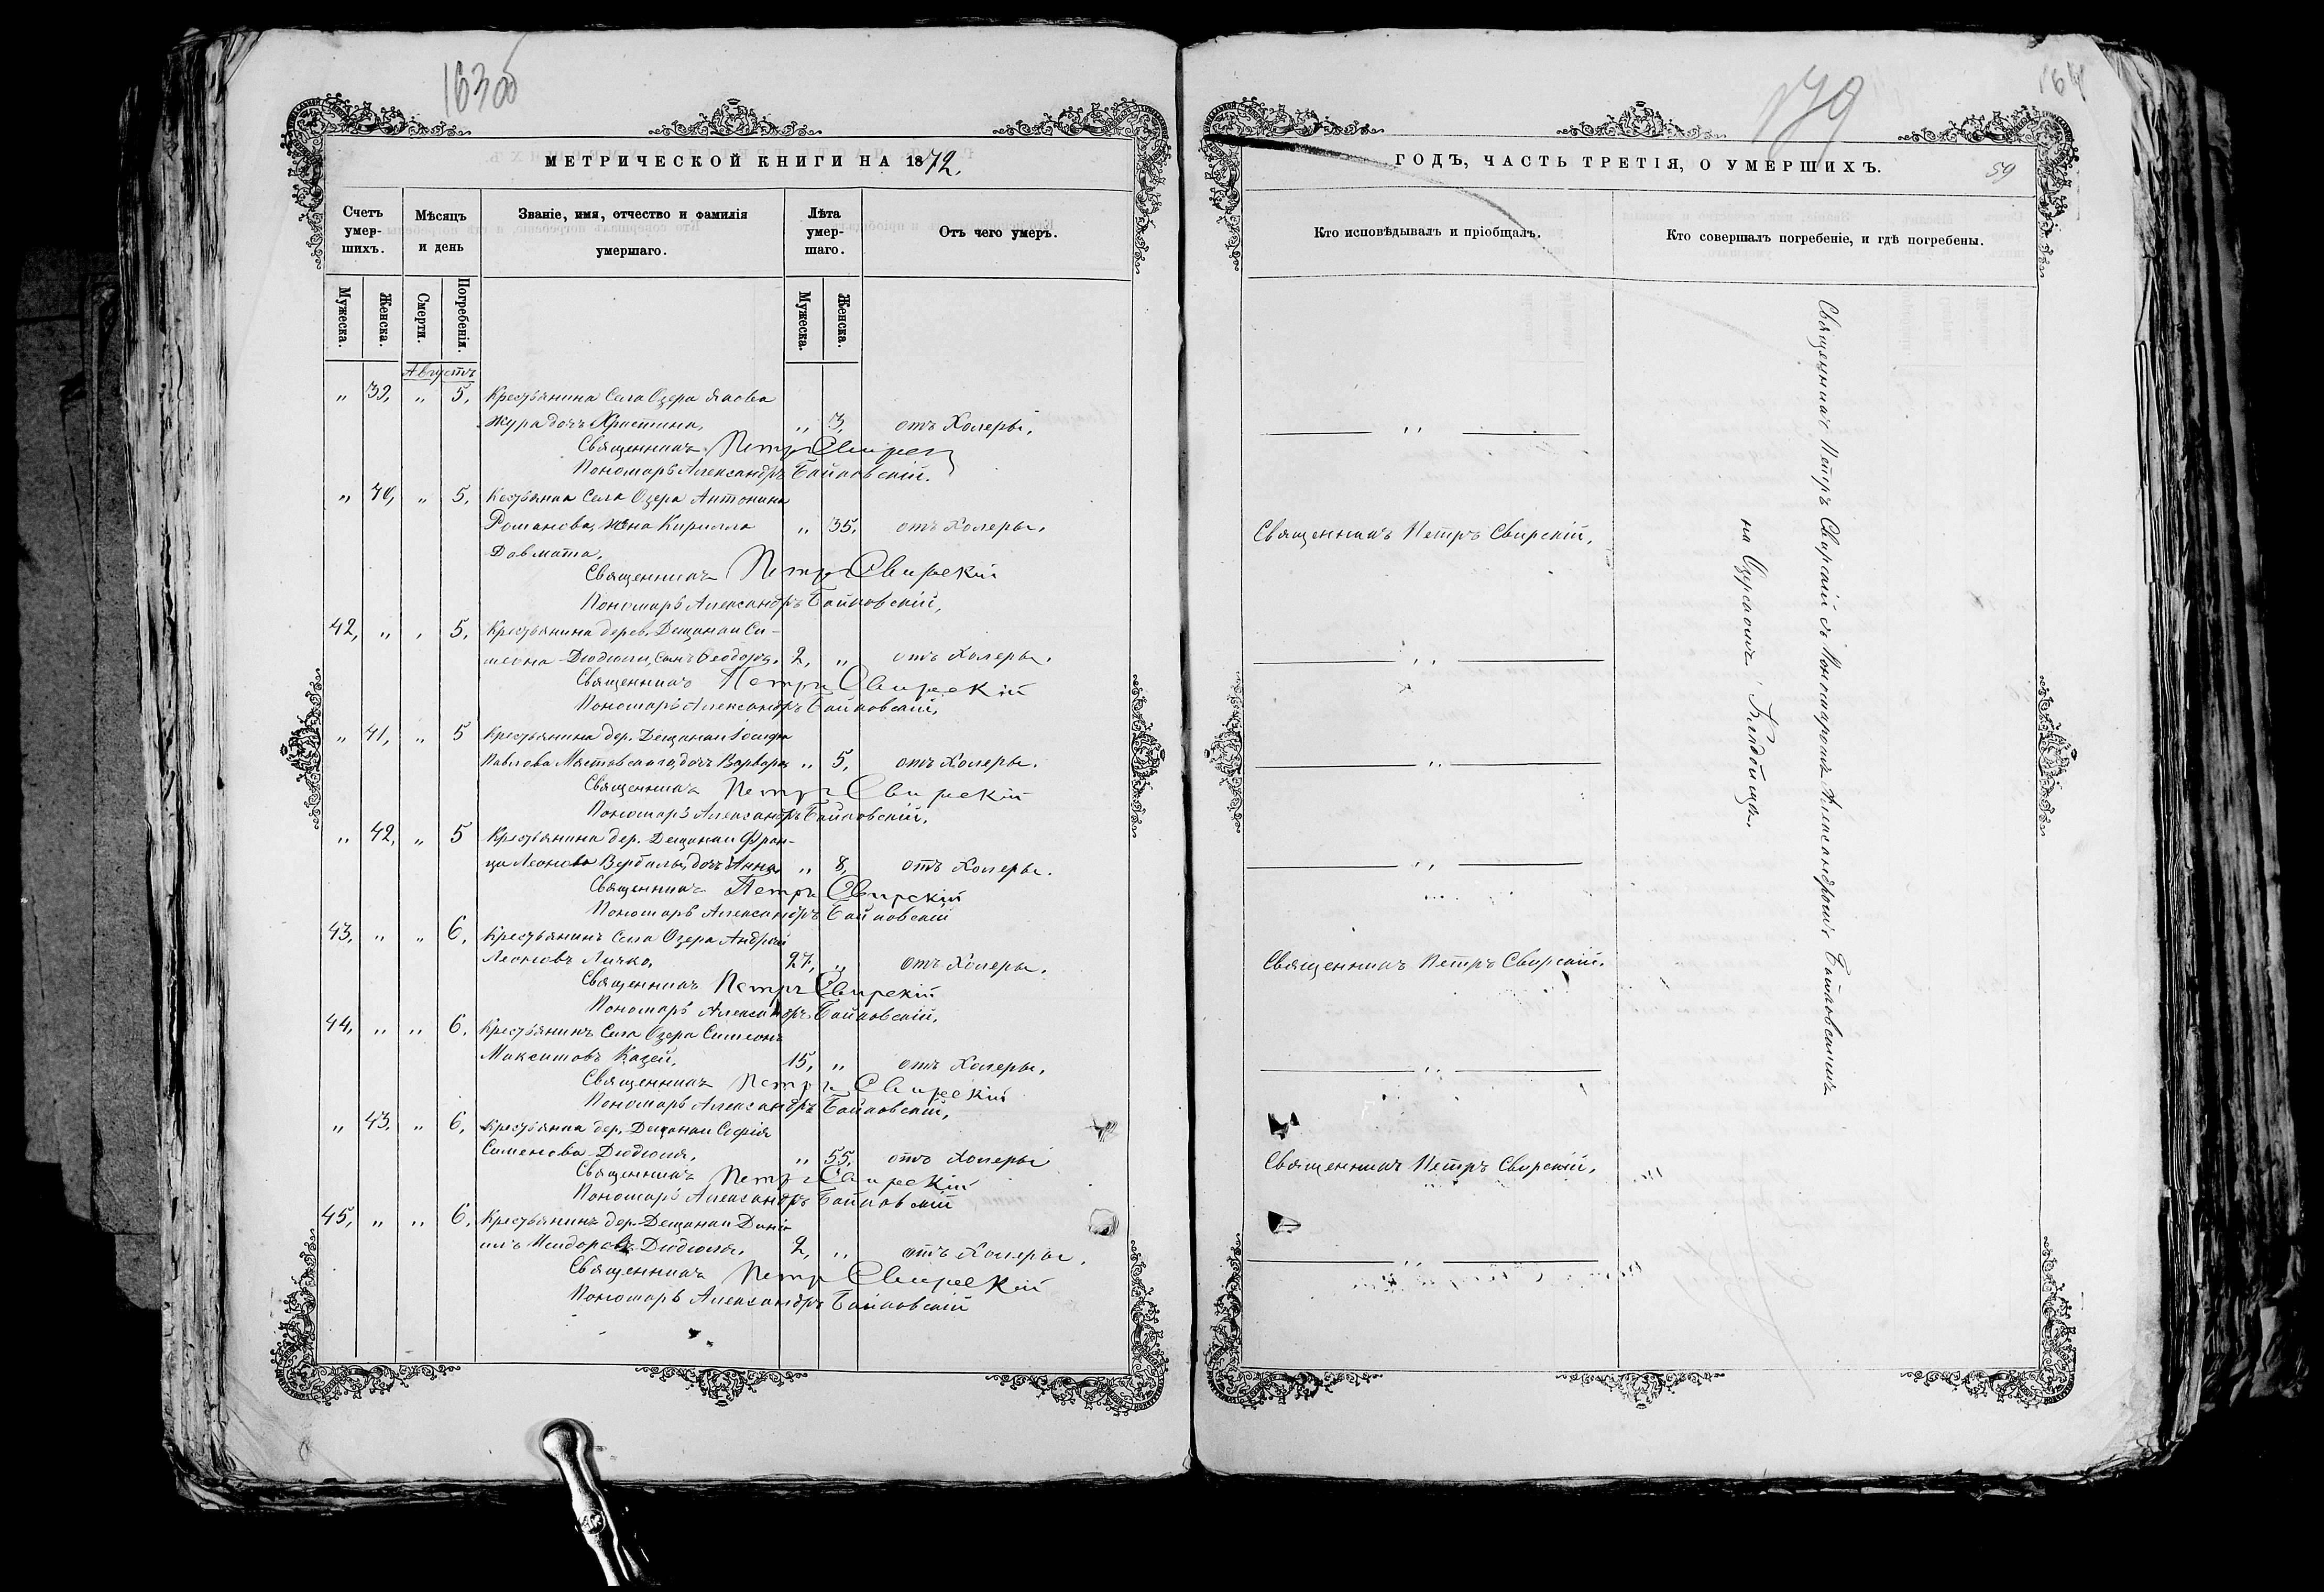 163об
МЕТРИЧЕСКОЙ КНИГИ НА 1872.
Счетъ умер-шихъ.
Мѣсяцъ и день
Званіе, имя, отчество и фамилія умершаго.
Лѣта умер-шаго.
Отъ чего умеръ.
Мужеска.
Женска.
Смерти.
Погребенія.
Мужеска.
Женска.
Августъ
„ 39, „ 5, Крестьянина Села Озера Якова
Жура дочь Христина, „ 3, отъ Холеры,
Священникъ Петръ Свирскій
Пономарь Александръ Байковскій.
„ 40, „ 5, Кестьянка Села Озера Антонина
Романова, жена Кирилла „ 35, отъ Холеры,
Довмата,
Священникъ Петръ Свирскій
Пономарь Александръ Байковскій,
42, „ „ 5, Крестьянина дерев. Дещанки Си-
меона Дюдюли, сынъ Ѳеодоръ, 2, „ отъ Холеры.
Священникъ Петръ Свирскій
Пономарь Александръ Байковскій,
„ 41, „ 5 Крестьянина дер. Дещанки Іосифа
Павлова дочь Варвара „ 5, отъ Холеры.
Священникъ Петръ Свирскій
Пономарь Александръ Байковскій,
„ 42, „ 5 Крестьянина дер. Дещанки Фран-
ца Леонова Вербилы, дочь Анна, „ 8, отъ Холеры.
Священникъ Петръ Свирскій
Пономарь Александръ Байковскій
43, „ „ 6, Крестьянинъ Села Озера Андрей
Леоновъ Личко, 27, „ отъ Холеры,
Священникъ Петръ Свирскій
Пономарь Александръ Байковскій,
44, „ „ 6, Крестьянинъ Села Озера Симеонъ
Максимовъ Кацей, 15, „ отъ Холеры,
Священникъ Петръ Свирскій
Пономарь Александръ Байковскій,
„ 43, „ 6, Крестьянка дер. Дещанки Софія
Сименова Дюдюля, „ 55, отъ Холеры
Священникъ Петръ Свирскій
Пономарь Александръ Байковскій
45, „ „ 6, Крестьянинъ дер. Дещанки Дани-
илъ Исидоровъ Дюдюля, 2, „ отъ Холеры,
Священникъ Петръ Свирскій
Пономарь Александръ Байковскій
179
164
ГОДЪ, ЧАСТЬ ТРЕТІЯ, О УМЕРШИХЪ.
59
Кто исповѣдывалъ и пріобщалъ.
Кто совершалъ погребеніе, и гдѣ погребены.
„
Священникъ Петръ Свирскій,
„
„
„
Священникъ Петръ Свирскій.
„
Священникъ Петръ Свирскій,
„
Священникъ Петръ Свирскій съ Пономаремъ Александромъ Байковскимъ
на Озерскомъ Кладбищѣ.